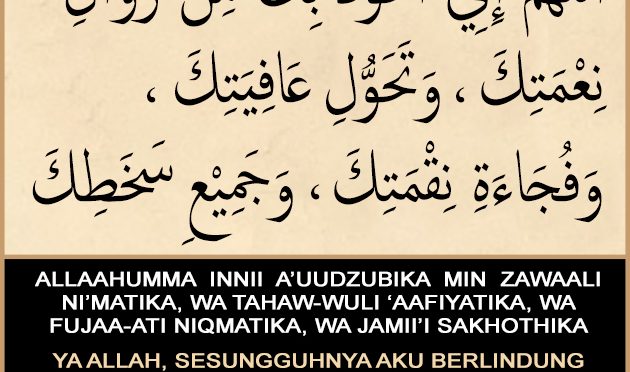 اللَّهُمَّ إِنِّي أَعُوذُ بِكَ مِنْ زَوَالِ
نِعْمَتِكَ ، وَتَحَوُّلِ عَافِيَتِكَ ،
وَفُجَاءَةِ نِقْمَتِكَ ، وَجَمِيْعِ سَخَطِكَ
ALLAAHUMMA INNII A’UUDZUBIKA MIN ZAWAALI
NI’MATIKA, WA TAHAW-WULI ‘AAFIYATIKA, WA
FUJAA-ATI NIQMATIKA, WA JAMII’I SAKHOTHIKA
YA ALLAH, SESUNGGUHNYA AKU BERLINDUNG